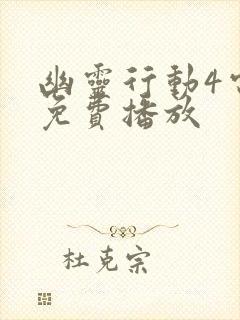 幽靈行動4
免費播放
杜克宗